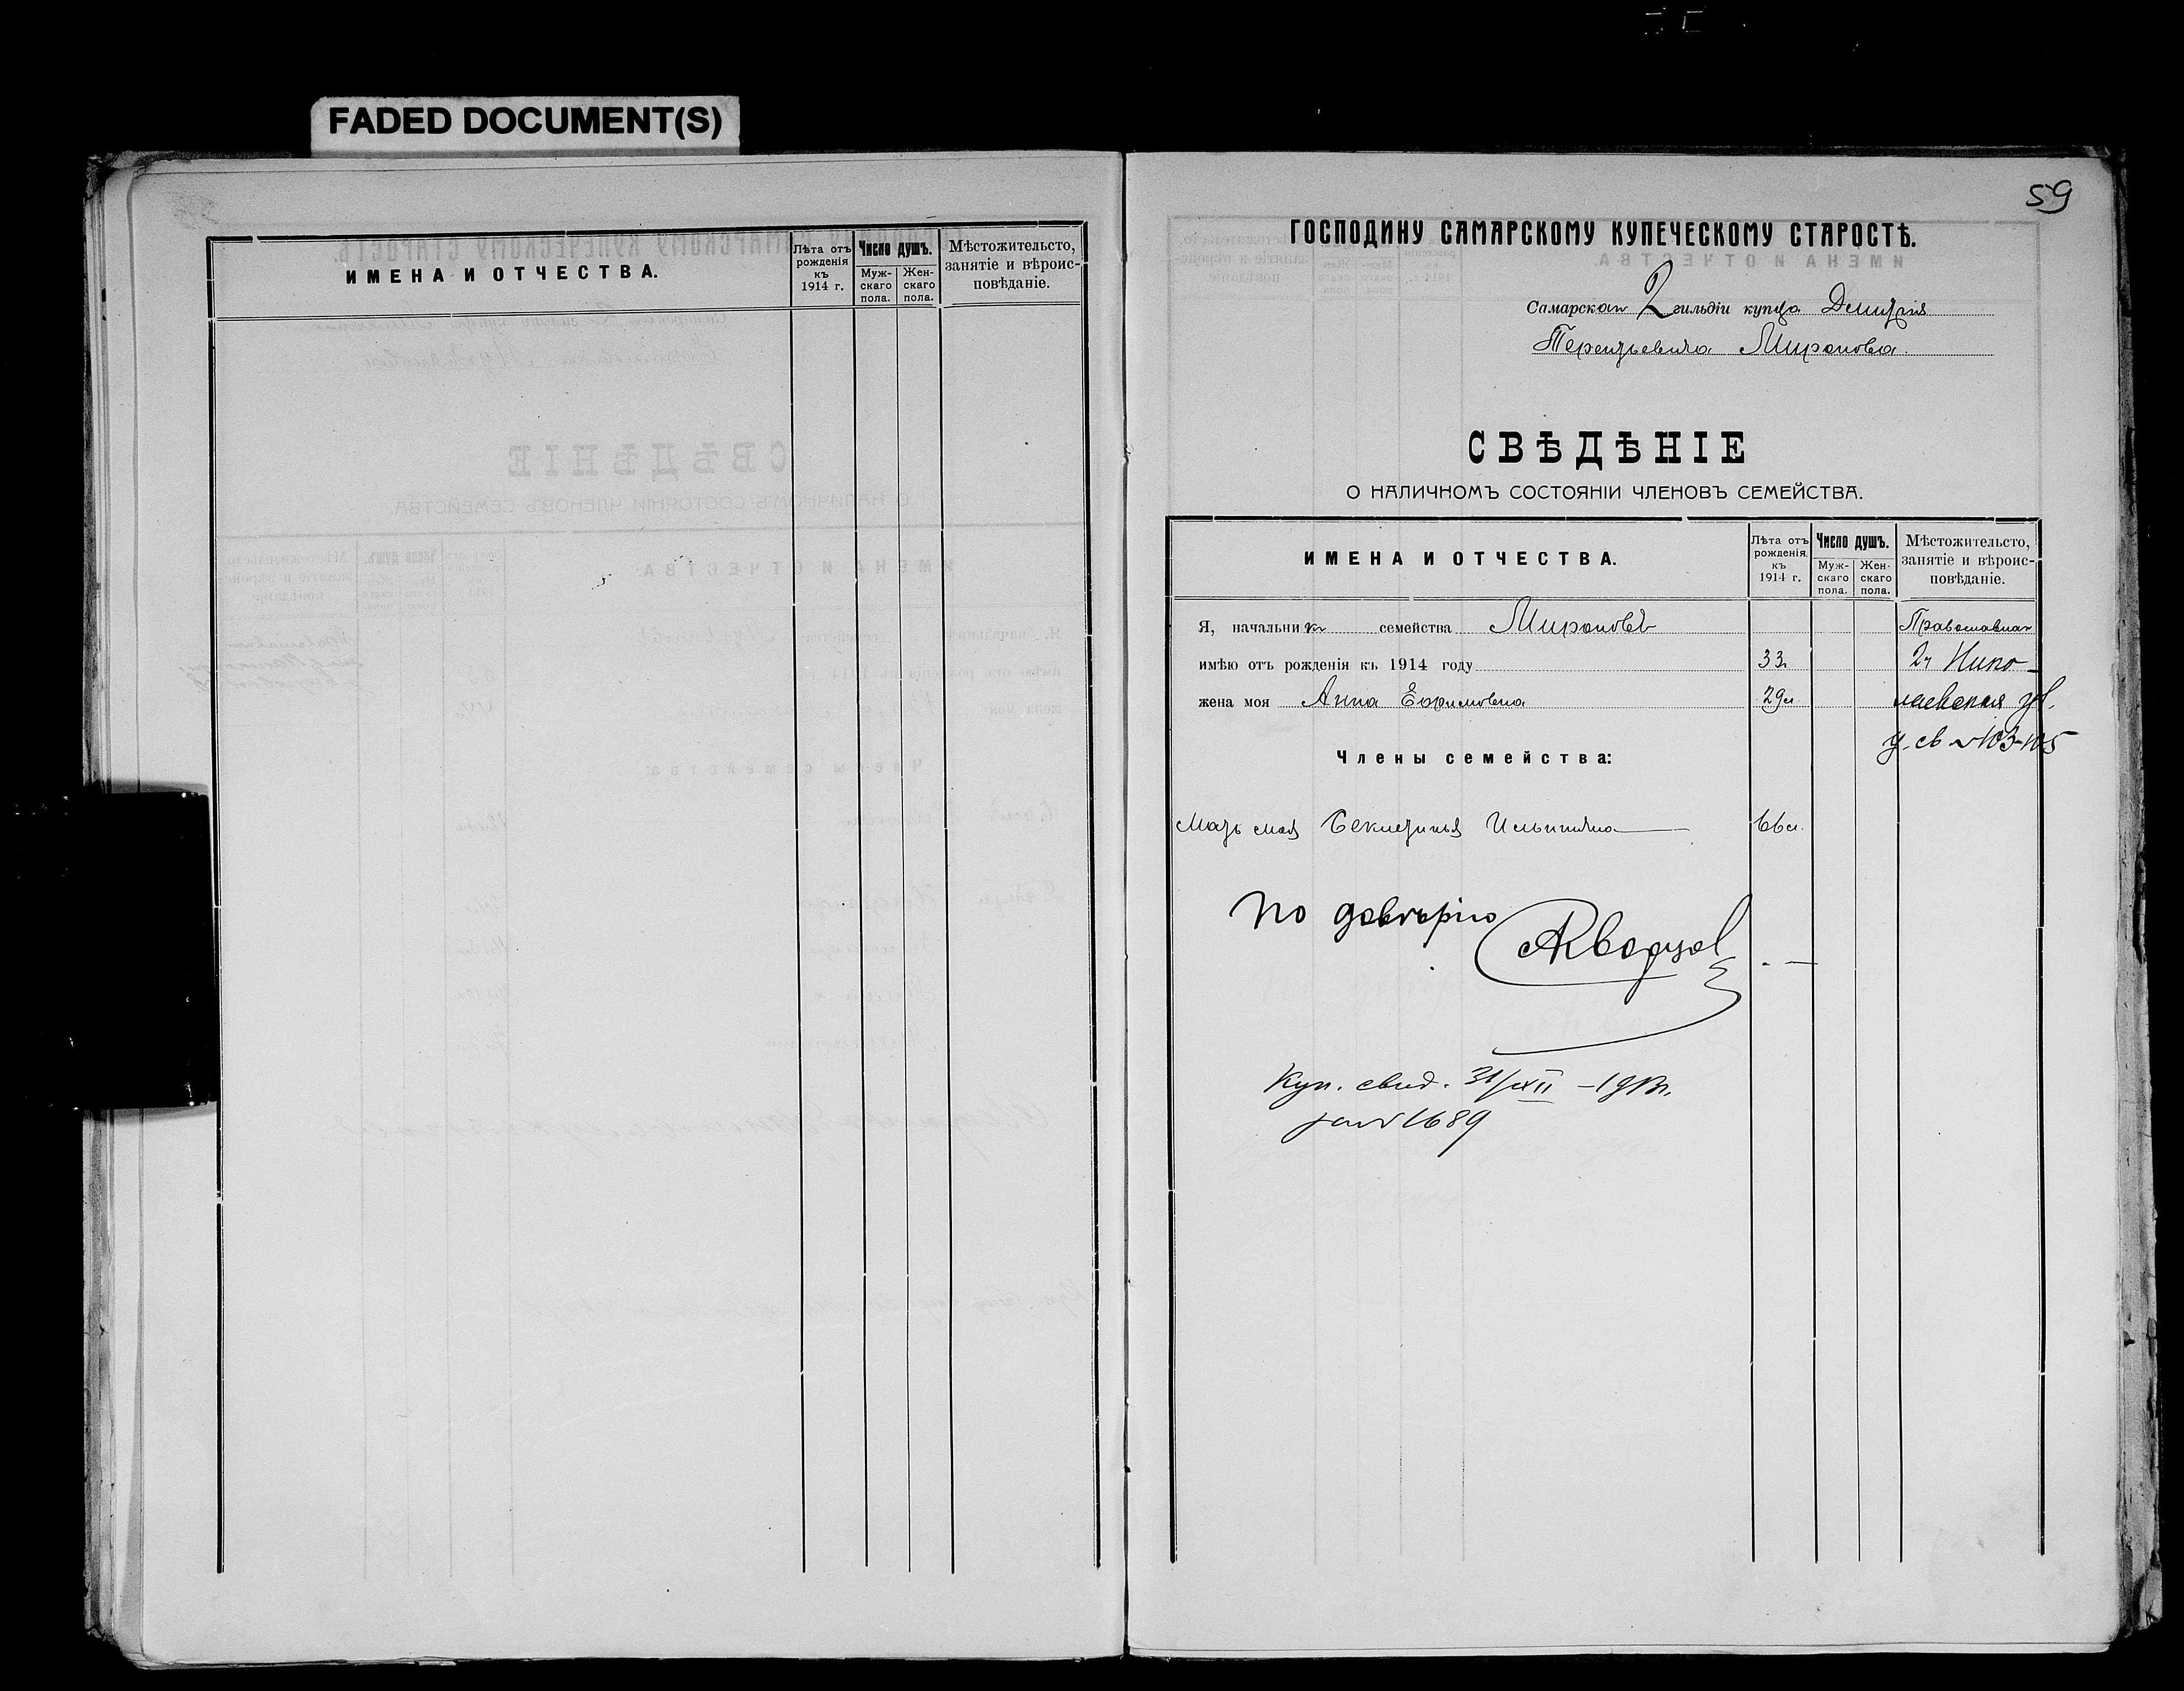 FADED DOCUMENT(S)
ИМЕНА И ОТЧЕСТВА.
Лѣта отъ рожденія къ 1914 г.
Число душъ.
Мужскаго пола.
Женскаго пола.
Мѣстожительсто, занятіе и вѣроисповѣданіе.
59
ГОСПОДИНУ САМАРСКОМУ КУПЕЧЕСКОМУ СТАРОСТѢ.
Самарскаго 2 гильдіи купца Дмитрія
Терентьевича Миронова.
СВѢДѢНІЕ
О НАЛИЧНОМЪ СОСТОЯНІИ ЧЛЕНОВЪ СЕМЕЙСТВА.
ИМЕНА И ОТЧЕСТВА.
Лѣта отъ рожденія къ 1914 г.
Число душъ.
Мужскаго пола.
Женскаго пола.
Мѣстожительсто, занятіе и вѣроисповѣданіе.
Я, начальникъ семейства Мироновъ Православная
имѣю отъ рожденія къ 1914 году 33 2ч Нико-
жена моя Анна Ефимовна 29л лаевская ул.
у. св №103-105
Члены семейства:
Мать моя Секлетинья Ильинична 66л.
по довѣрію
Куп. свид. 31/XII – 1913г.
за № 1689